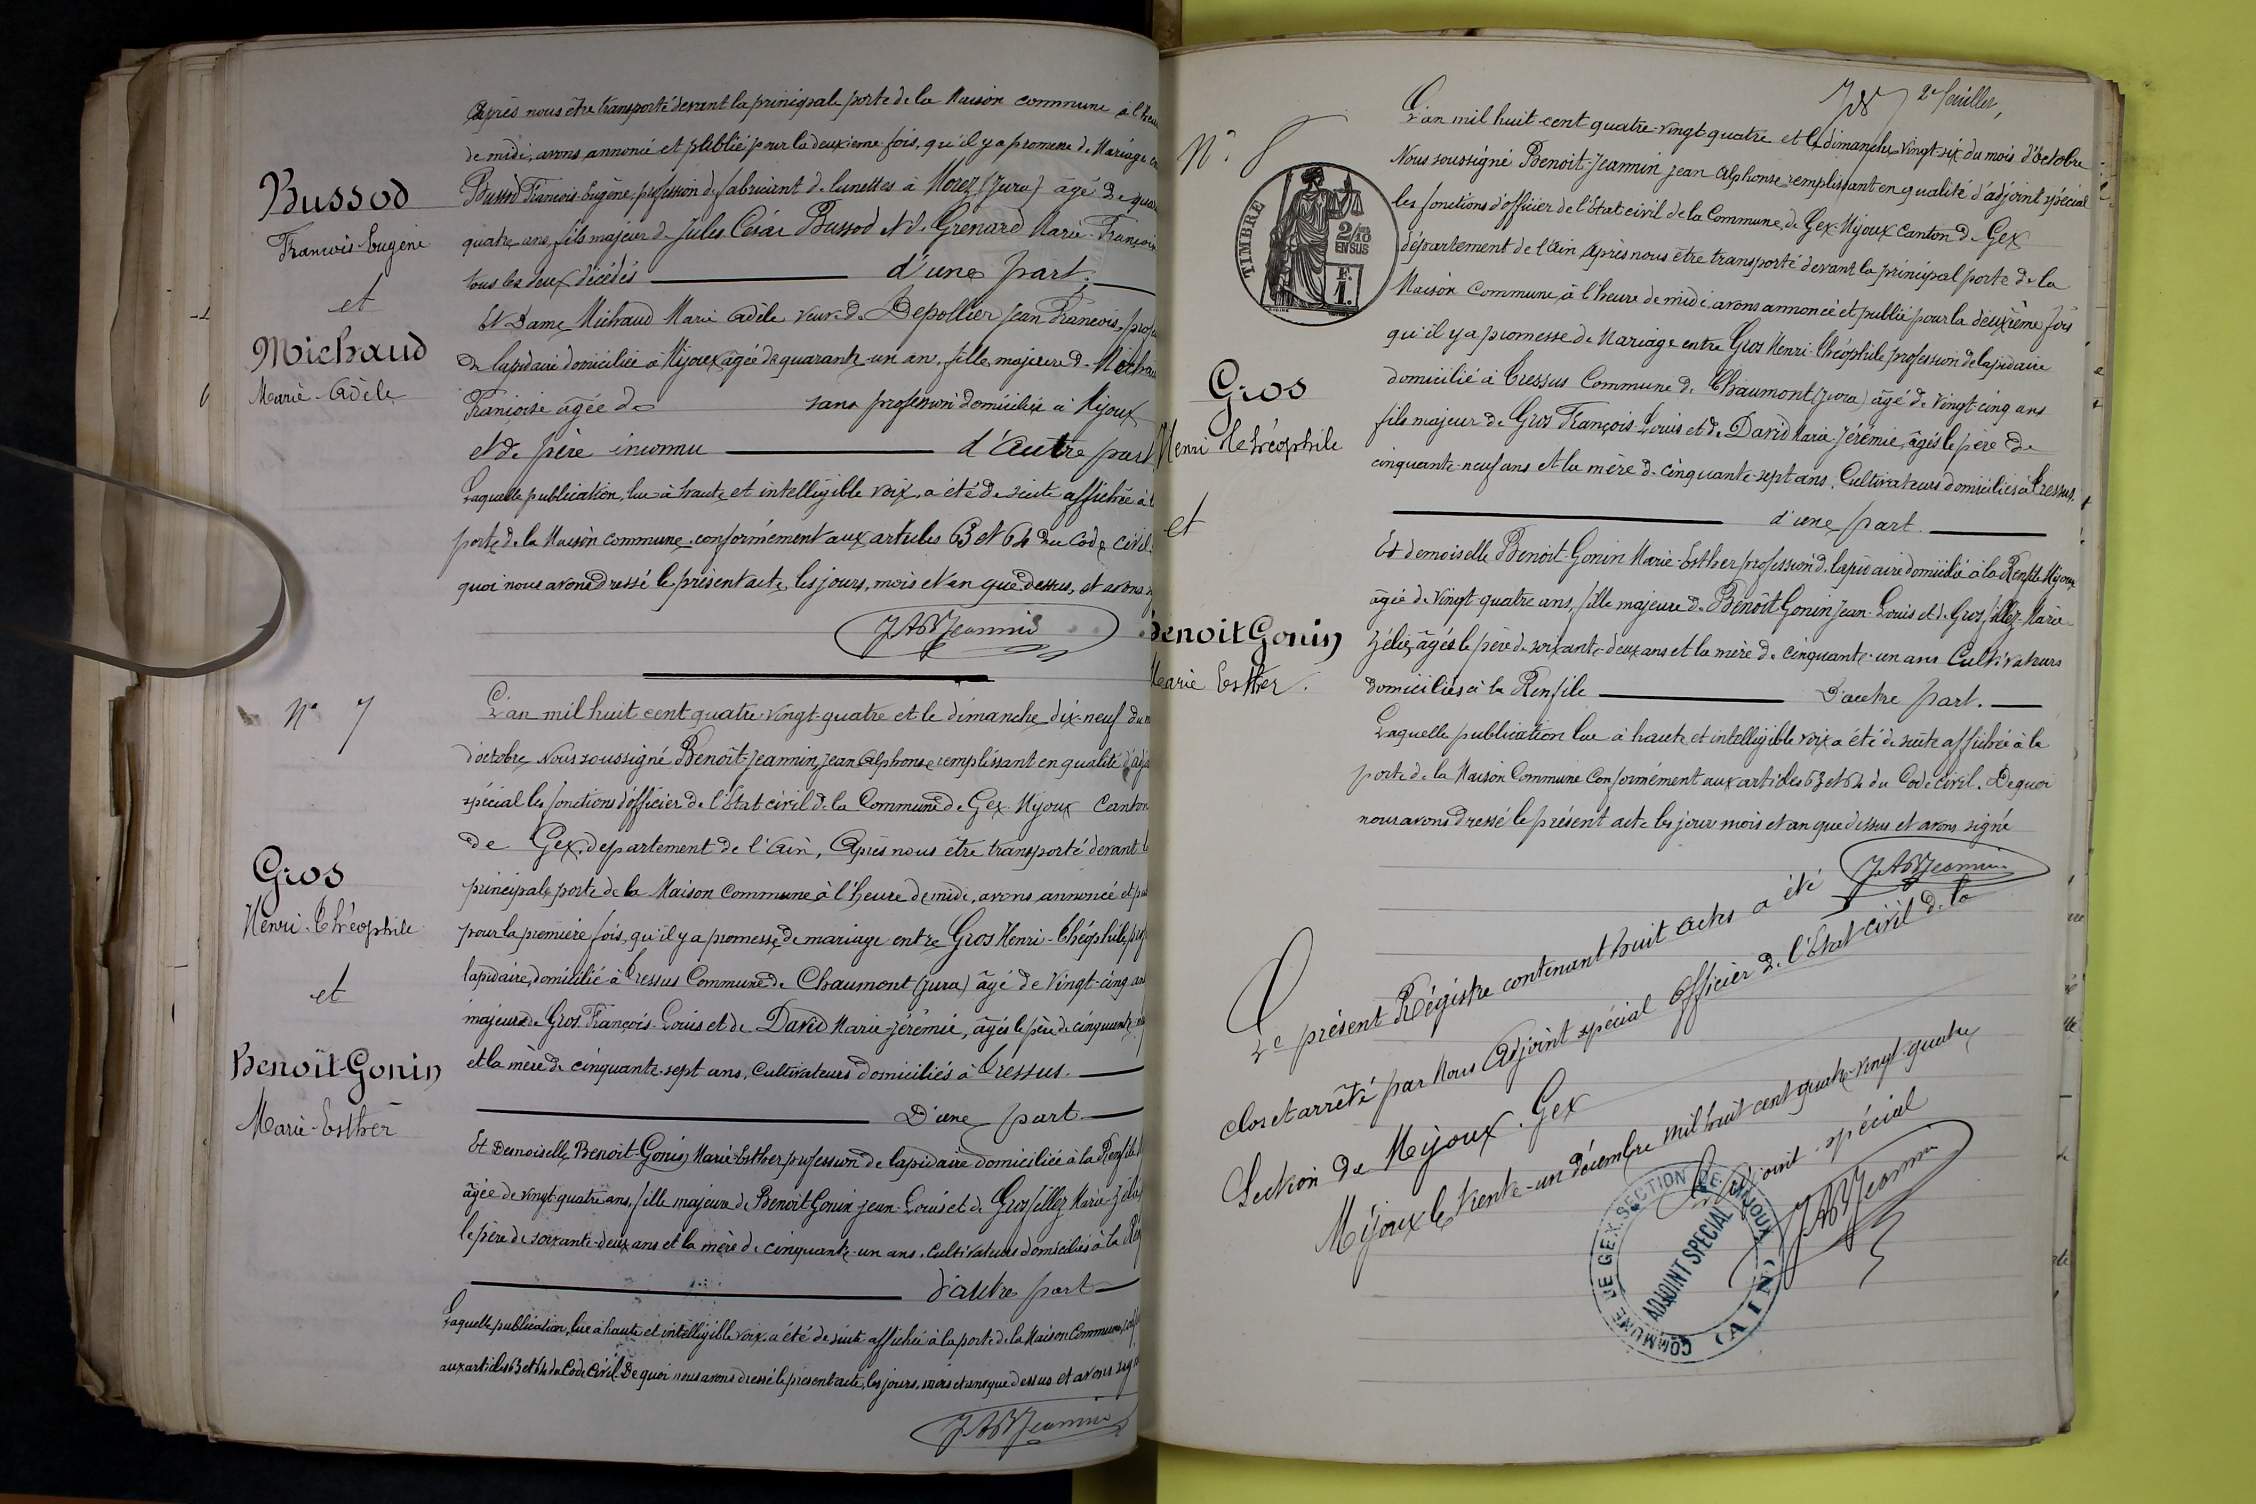 Après nous être transporté devant la principale porte de la Maison commune à l'heu
de midi, avons annoncé et plublié pour la deuxième fois, qu'il y a promesse de Mariage en
Bussod François-Eugène, profession de fabricant de lunettes à Morez (Jura) âgé de quar
quatre ans, fils majeur de Jules César Bussod et de Grenard Marie-François
tous les deux décédés d'une part.
Et Dame Michaud Marie Adèle veuve de Depollier Jean François, prof
de lapidaire domiciliée à Mijoux âgée de quarante un an, fille majeure de Michau
Françoise âgée de sans profession domiciliée à Mijoux
et de père inconnu d'autre part
Laquelle publication, lue à haute et intelligible voix, a été de suite affichée à l
porte de la Maison commune, conformément aux articles 63 et 64 du code civil.
quoi nous avons dressé le présent acte, les jours, mois et an que dessus, et avons s
JABJeannin
Bussod
François-Eugène
et
Michaud
Marie-Adèle
N° 7
L'an mil huit cent quatre-vingt-quatre et le dimanche dix-neuf du m
d'octobre, Nous soussigné Benoit-Jeannin, Jean Alphonse remplissant en qualité d'adj
spécial les fonctions d'officier de l'État civil de la Commune de Gex-Mijoux Canton
de Gex, departement de l'Ain, Après nous être transporté devant l
principale porte de la Maison commune à l'heure de midi, avons annoncé et pu
pour la première fois, qu'il y a promesse de mariage entre Gros Henri-Théophile, prof
lapidaire, domicilié à Cressus Commune de Chaumont (Jura) âgé de vingt-cinq ans
majeur de Gros François-Louis et de David Marie-Jérémie, âgés le père de cinquante-neu
et la mère de cinquante-sept ans, Cultivateurs domiciliés à Cressus.
D'une part
Et Demoiselle Benoit-Gonin, Marie-Esther profession de lapidaire domiciliée à la Renfile
âgée de vingt-quatre ans, fille majeure de Benoit-Gonin Jean-Louis et de Grosfillez Marie-Zélie
le père de soixante-deux ans et la mère de cinquante-un ans, Cultivateurs domiciliés à la Ren
d'autre part
Laquelle publication, lue à haute et intelligible voix, a été de suite affichée à la porte de la Maison Commune, conf
aux articles 63 et 64 du Code Civil. De quoi nous avons dressé le présent acte, les jours, mois et an que dessus et avons sign
JABJeannin
Gros
Henri-Théophile
et
Benoît-Gonin
Marie-Esther
2e feuillet,
N° 8
TIMBRE
2/10
EN SUS
F.
1.
L'an mil huit-cent quatre-vingt-quatre et le dimanche vingt-six du mois d'octobre
Nous soussigné Benoit-Jeannin Jean Alphonse remplissant en qualité d'adjoint spécial
les fonctions d'officier de l'État civil de la Commune, de Gex-Mijoux Canton de Gex
département de l'Ain, Après nous être transporté devant la principal porte de la
Maison Commune, à l'heure de midi avons annoncé et publié pour la deuxième fois
qu'il y a promesse de Mariage entre Gros Henri-Théophile profession de lapidaire
domicilié à Cressus Commune de Chaumont (Jura) âgé de vingt-cinq ans
fils majeur de Gros François-Louis et de David Marie-Jérémie, âgés le père de
cinquante-neuf ans et la mère de cinquante-sept ans, Cultivateurs domiciliés à Cressus.
d'une part.
Et demoiselle Benoit-Gonin Marie-Esther profession de lapidaire domicilié à la Renfile Mijoux
âgée de vingt-quatre ans, fille majeure de Benoit-Gonin Jean-Louis et de Grosfillez-Marie-
Zélie, âgés le père de soixante-deux ans et la mère de cinquante-un ans Cultivateurs
domiciliés à la Renfile D'autre part.
Laquelle publication lue à haute et intelligible voix a été de suite affichée à la
porte de la Maison Commune Conformément aux articles 63 et 64 du Code Civil. De quoi
nous avons dressé le présent acte les jour mois et an que dessus et avons signé
JABJeannin
Gros
Henri Théophile
et
Benoit Gonin
Marie Esther.
Le présent Régistre contenant huit actes a été
clos et arrêté par Nous Adjoint spécial Officier de l'État-civil de la
Section de Mijoux-Gex
Mijoux le trente-un décembre mil huit cent quatre-vingt-quatre
L'adjoint spécial
JABJeannin
COMMUNE DE GEX. SECTION DE MIJOUX
ADJOINT SPECIAL
(AIN)